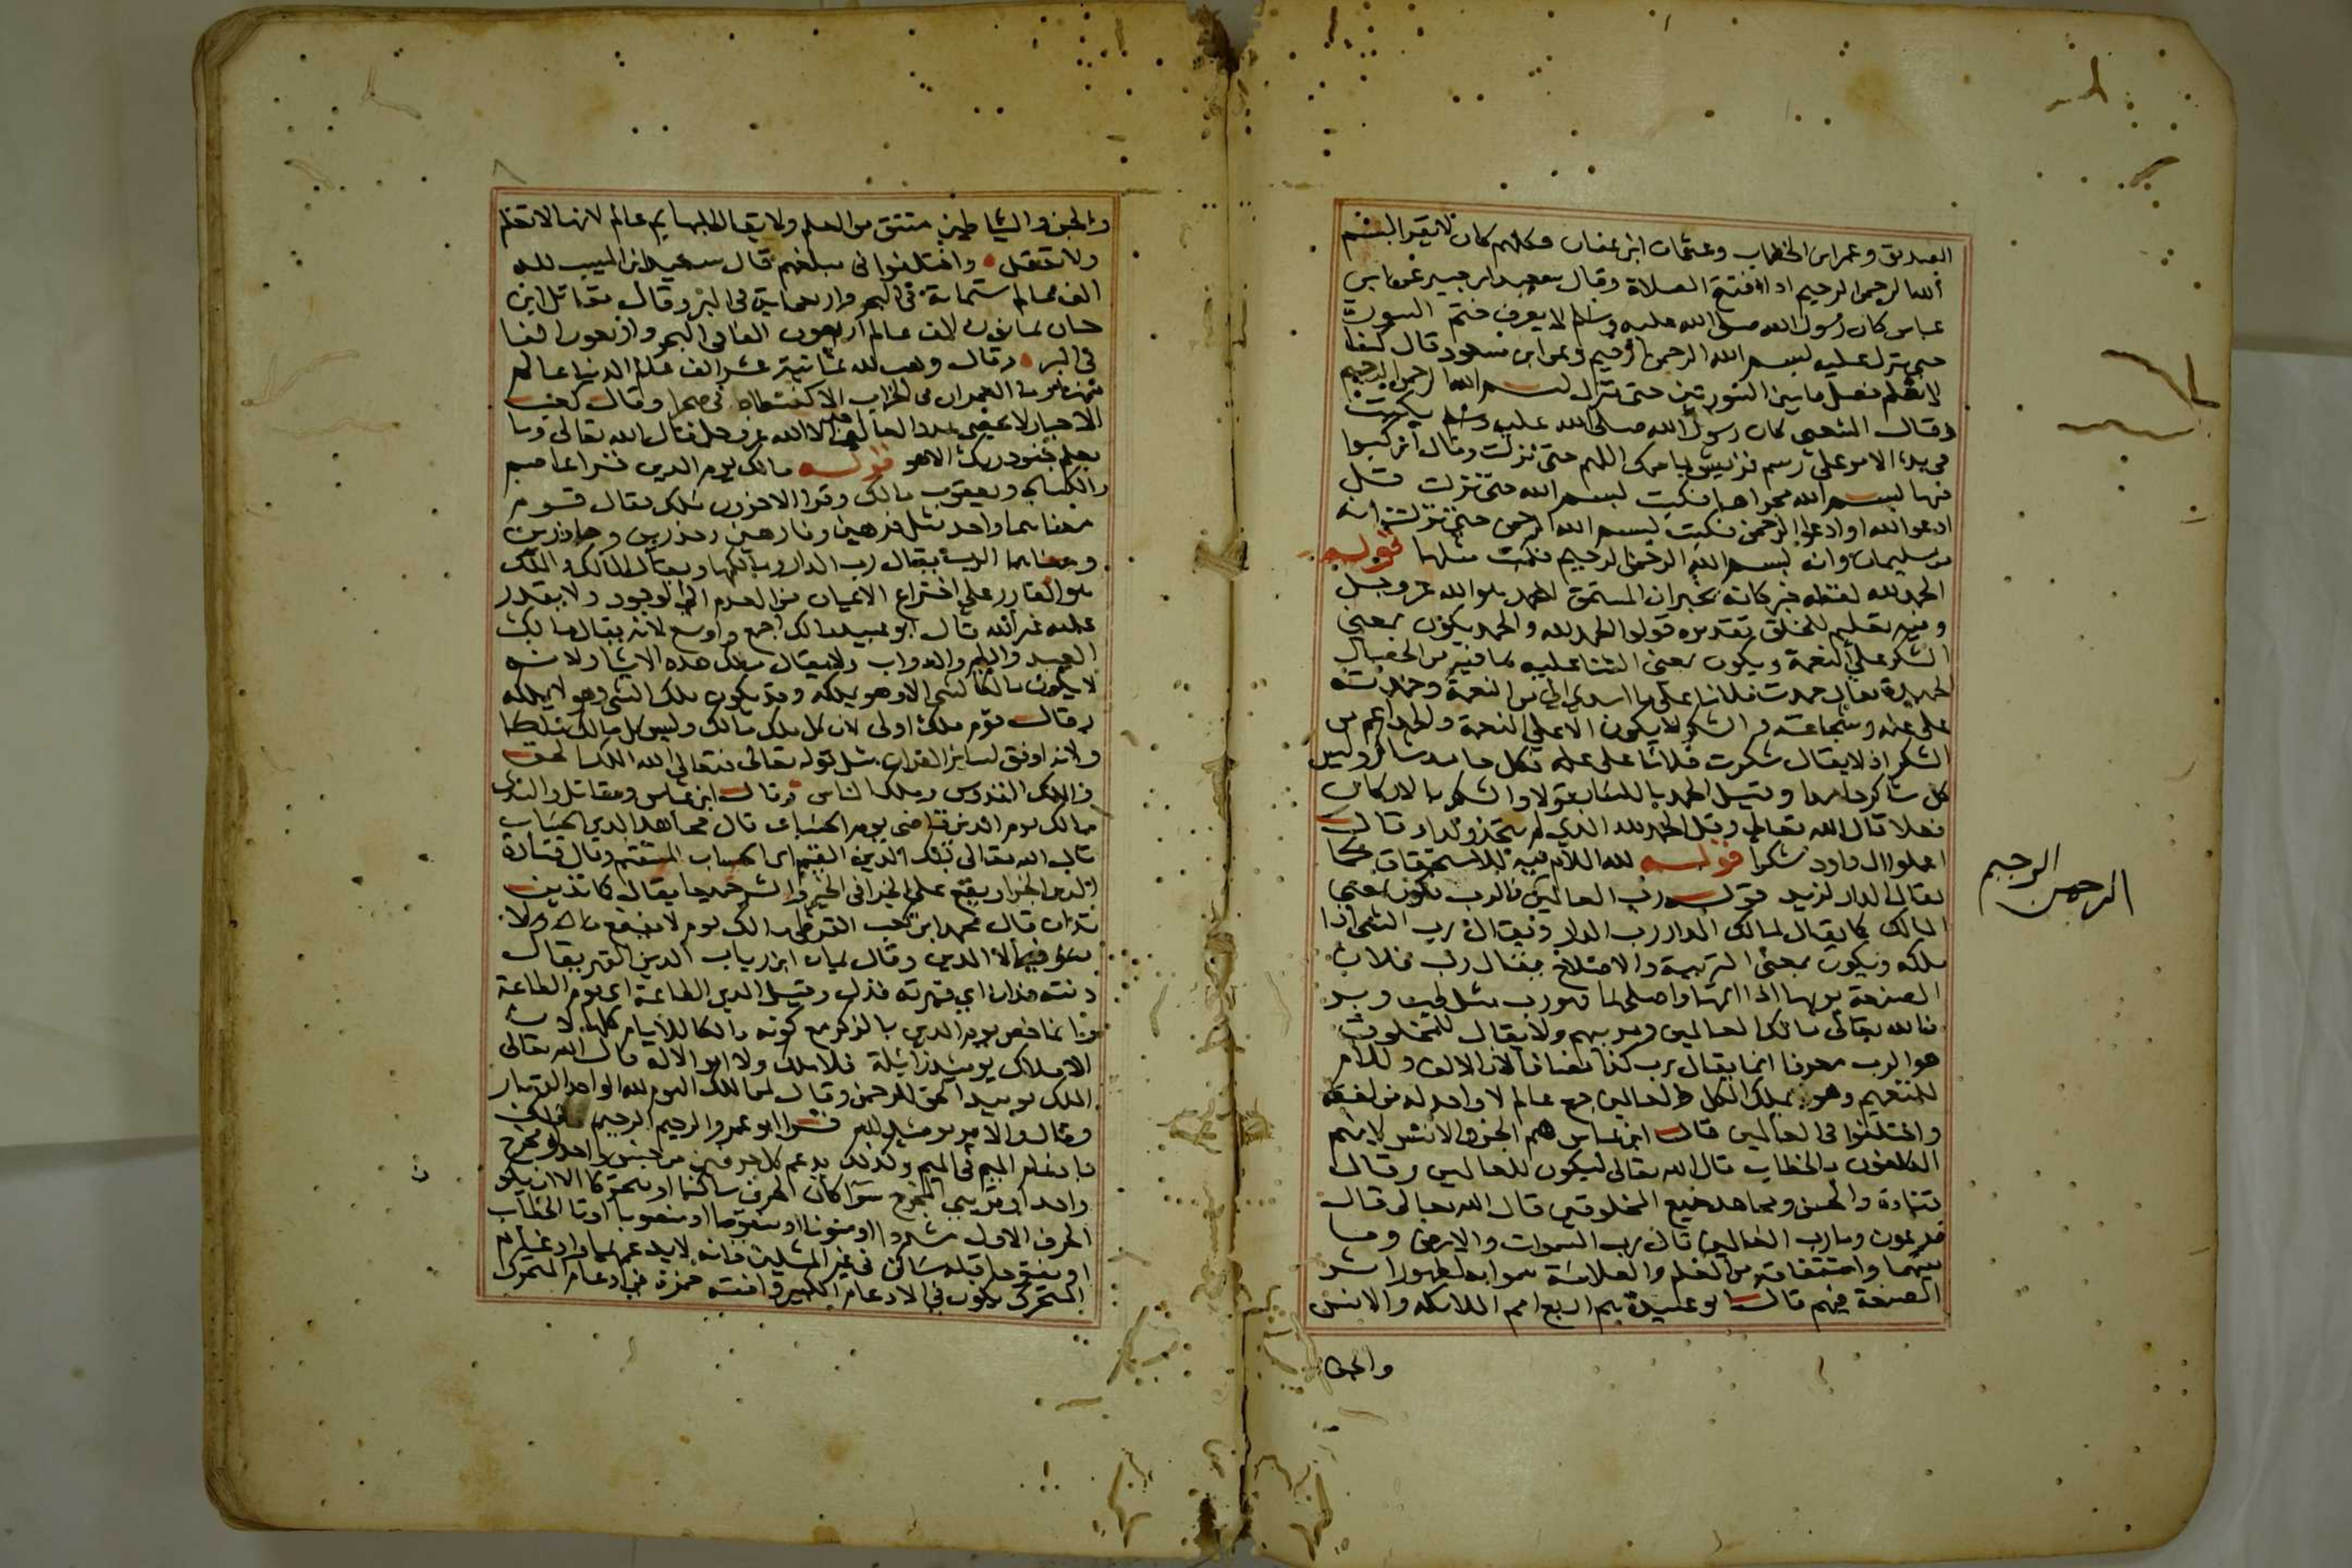 الصديق وعمر ابن الخطاب وعثمان ابن عفان وكلهم كان لا يقرا ببسم
الله الرحمن الرحيم اذا افتتح الصلاة وقال سعيد ابن جبير عن ابن
عباس كان رسول الله صلى الله عليه وسلم لا يعرف ختم السورة
حتى ينزل عليه بسم الله الرحمن الرحيم وعن ابن مسعود قال كنا
لا نعلم فصل ما بين السورتين حتى تنزل بسم الله الرحمن الرحيم
وقال الشعبى كان رسول الله صلى الله عليه وسلم يكتب
فى بدء الامر على رسم قريش باسمك اللهم حتى نزلت وقال اركبوا
فيها بسم الله مجراها فكتب بسم الله حتى نزلت قل
ادعوا الله او ادعوا الرحمن فكتب بسم الله الرحمن حتى نزلت انه
من سليمان وانه بسم الله الرحمن الرحيم فكتب مثلها قوله
الحمد لله لفظه خبر كانه يخبر ان المستحق للحمد هو الله عز وجل
وفيه تعليم للخلق تقديره قولوا الحمد لله والحمد يكون بمعنى
الشكر على النعمة ويكون بمعنى الثنا عليه بما فيه من الخصال
الحميدة يقال حمدت فلانا على ما اسدى الى من النعمة وحمدته
على علمه وشجاعته والشكر لا يكون الا على النعمة والحمد اعم من
الشكر اذ لا يقال شكرت فلانا على علمه فكل حامد شاكر وليس
كل شاكر حامدا وقيل الحمد باللسان قولا والشكر بالاركان
فعلا قال الله تعالى وقل الحمد لله الذى لم يتخذ ولدا وقال
اعملوا ال داود شكرا قوله لله اللام فيه للاستحقاق كما
يقال الدار لزيد قوله رب العالمين فالرب يكون بمعنى
المالك كما يقال لمالك الدار رب الدار ويقال رب الشى اذا
ملكه ويكون بمعنى التربية والاصلاح يقال رب فلان
الضيعة يربها اذا اتمها واصلحها فهو رب مثل طب وبر
فالله تعالى مالك العالمين ومربيهم ولا يقال للمخلوق
هو الرب معرفا انما يقال رب كذا مضافا لان الالف واللام
للتعميم وهو لا يملك الكل والعالمين جمع عالم لا واحد له من لفظه
واختلفوا فى العالمين قال ابن عباس هم الجن والانس لانهم
المكلفون بالخطاب قال الله تعالى ليكون للعالمين وقال
قتادة والحسن ومجاهد جميع المخلوقين قال الله تعالى قال
فرعون وما رب العالمين قال رب السموات والارض وما
بينهما واشتقاقه من العلم والعلامة سموا به لظهور اثر
الصنعة فيهم قال ابو عبيدة هم اربع امم الملائكة والانس
والجن
الرحمن الرحيم
٨
والجن والشياطين مشتق من العلم ولا يقال للبهايم عالم لانها لا تعلم
ولا تعقل واختلفوا فى مبلغهم قال سعيد ابن المسيب لله
الف عالم ستماية فى البحر واربعماية فى البر وقال مقاتل ابن
حيان ثمانون الف عالم اربعون الفا فى البحر واربعون الفا
فى البر وقال وهب لله ثمانية عشر الف عالم الدنيا عالم
منها وما العمران فى الخراب الا كفسطاط فى صحرا وقال كعب
الاحبار لا يحصى عدد العالمين الا الله عز وجل قال الله تعالى وما
يعلم جنود ربك الا هو قوله مالك يوم الدين قرا عاصم
والكسائى ويعقوب مالك وقرا الاخرون ملك فقال قوم
معناهما واحد مثل فرهين وفارهين وحذرين وحاذرين
ومعناهما الرب يقال رب الدار ومالكها وقيل المالك والملك
هو القادر على اختراع الاعيان من العدم الى الوجود ولا يقدر
عليه غير الله قال ابو عبيد مالك اجمع واوسع لانه يقال مالك
العبيد والطير والدواب ولا يقال ملك هذه الاشيا ولانه
لا يكون مالكا لشى الا وهو يملكه وقد يكون ملك الشى وهو لا يملكه
وقال قوم ملك اولى لان كل ملك مالك وليس كل مالك ملكا
ولانه اوفق لساير القران مثل قوله تعالى فتعالى الله الملك الحق
والملك القدوس وملك الناس وقال ابن عباس ومقاتل والسدى
مالك يوم الدين قاضى يوم الحساب قال مجاهد الدين الحساب
قال الله تعالى ذلك الدين القيم اى الحساب المستقيم وقال قتادة
الدين الجزا ويقع على الجزا فى الخير والشر جميعا يقال كما تدين
تدان قال محمد ابن كعب القرظى مالك يوم لا ينفع مال ولا
بنون فيه الا الدين وقال يمان ابن رياب الدين القهر يقال
دنته فدان اى قهرته فذل وقيل الدين الطاعة اى يوم الطاعة
وانما خص يوم الدين بالذكر مع كونه مالكا للايام كلها لان
الاملاك يوميذ زائلة فلا ملك ولا امر الا له قال الله تعالى
الملك يوميذ الحق للرحمن وقال لمن الملك اليوم لله الواحد القهار
وقال والامر يوميذ لله قرا ابو عمرو الرحيم ملك
بادغام الميم فى الميم وكذلك يدغم كل حرفين من جنس واحد او مخرج
واحد او قريبى المخرج سوا كان الحرف ساكنا او متحركا الا ان يكون
الحرف الاول مشددا او منونا او منقوصا او مفتوحا او تا الخطاب
او مفتوحا قبله ساكن فى غير المثلين فانه لا يدغمهما وادغام
المتحرك يكون فى الادغام الكبير وافقه حمزة فى ادغام المتحرك